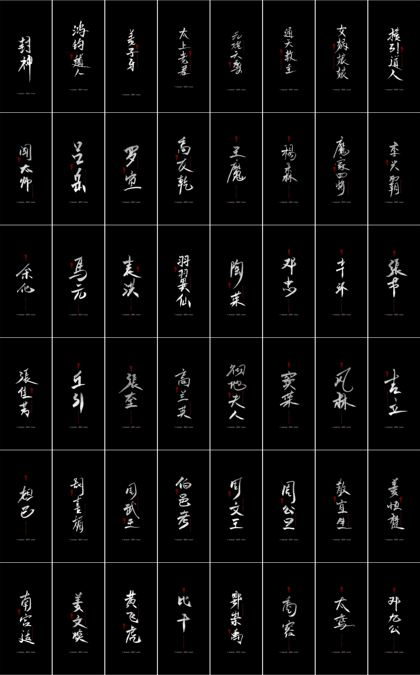 封神
鸿钧道人
姜子牙
太上老君
元始天尊
通天教主
女娲娘娘
接引道人
闻太师
吕岳
罗宣
高友乾
王魔
杨森
魔家四将
李兴霸
余化
马元
袁洪
羽翼仙
陶荣
邓忠
辛环
張节
丘引
張奎
高兰英
窦荣
风林
吉立
妲己
周武王
伯邑考
周文王
周公旦
散宜生
姜恒楚
南宫适
姜文焕
黄飞虎
比干
鄂崇禹
商容
太鸾
邓九公